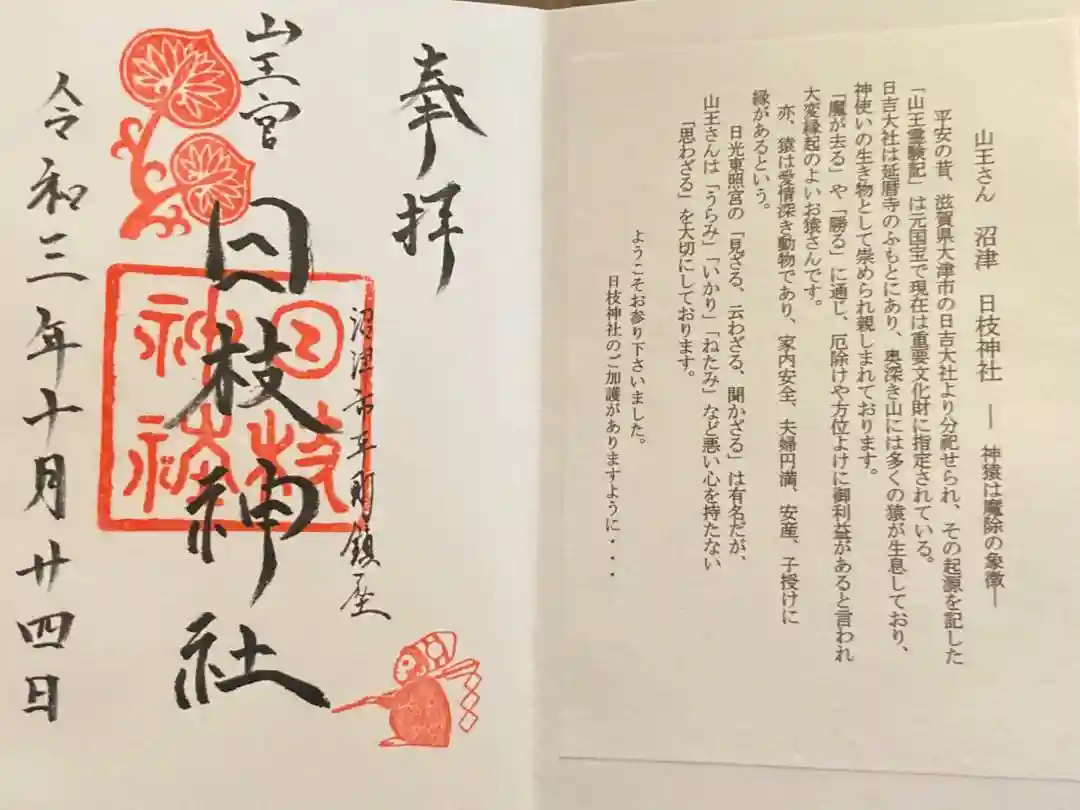 山王さん　沼津　日枝神社　― 神猿は魔除の象徴―
平安の昔、滋賀県大津市の日吉大社より分祀せられ、その起源を記した
「山王霊験記」は元国宝で現在は重要文化財に指定されている。
日吉大社は延暦寺のふもとにあり、奥深き山には多くの猿が生息しており、
神使いの生き物として崇められ親しまれております。
「魔が去る」や「勝る」に通じ、厄除けや方位よけに御利益があると言われ
大変縁起のよいお猿さんです。
亦、猿は愛情深き動物であり、家内安全、夫婦円満、安産、子授けに
縁があるという。
日光東照宮の「見ざる、云わざる、聞かざる」は有名だが、
山王さんは「うらみ」「いかり」「ねたみ」など悪い心を持たない
「思わざる」を大切にしております。
ようこそお参り下さいました。
日枝神社のご加護がありますように・・・
奉拝
沼津市平町鎮座
山王宮
日枝神社
日枝
神社
令和三年十月廿四日